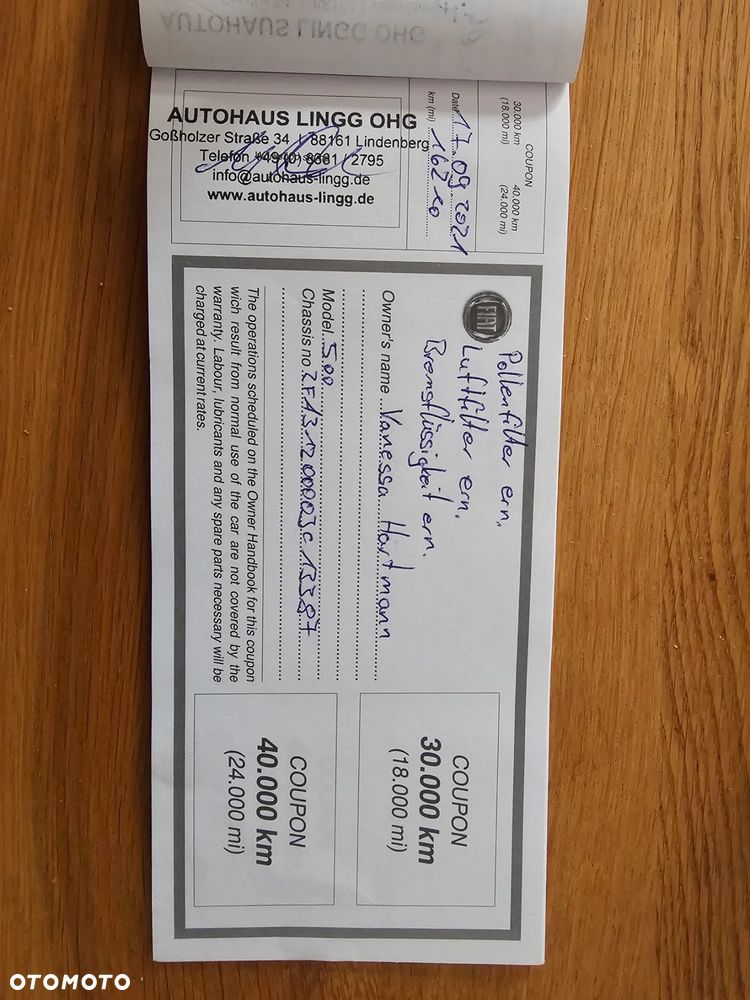 AUTOHAUS LINGG OHG
AUTOHAUS LINGG OHG
Goßholzer Straße 34 | 88161 Lindenberg
Telefon +49 (0) 8381 / 2795
info@autohaus-lingg.de
www.autohaus-lingg.de
Date 17.09.2021
km (mi) 16210
COUPON
30.000 km
(18.000 mi)
40.000 km
(24.000 mi)
FIAT
Pollenfilter ern.
Luftfilter ern.
Bremsflüssigkeit ern.
Owner's name Vanessa Hartmann
Model 500
Chassis no
The operations scheduled on the Owner Handbook for this coupon
wich result from normal use of the car are not covered by the
warranty. Labour, lubricants and any spare parts necessary will be
charged at current rates.
COUPON
30.000 km
(18.000 mi)
COUPON
40.000 km
(24.000 mi)
OTOMOTO